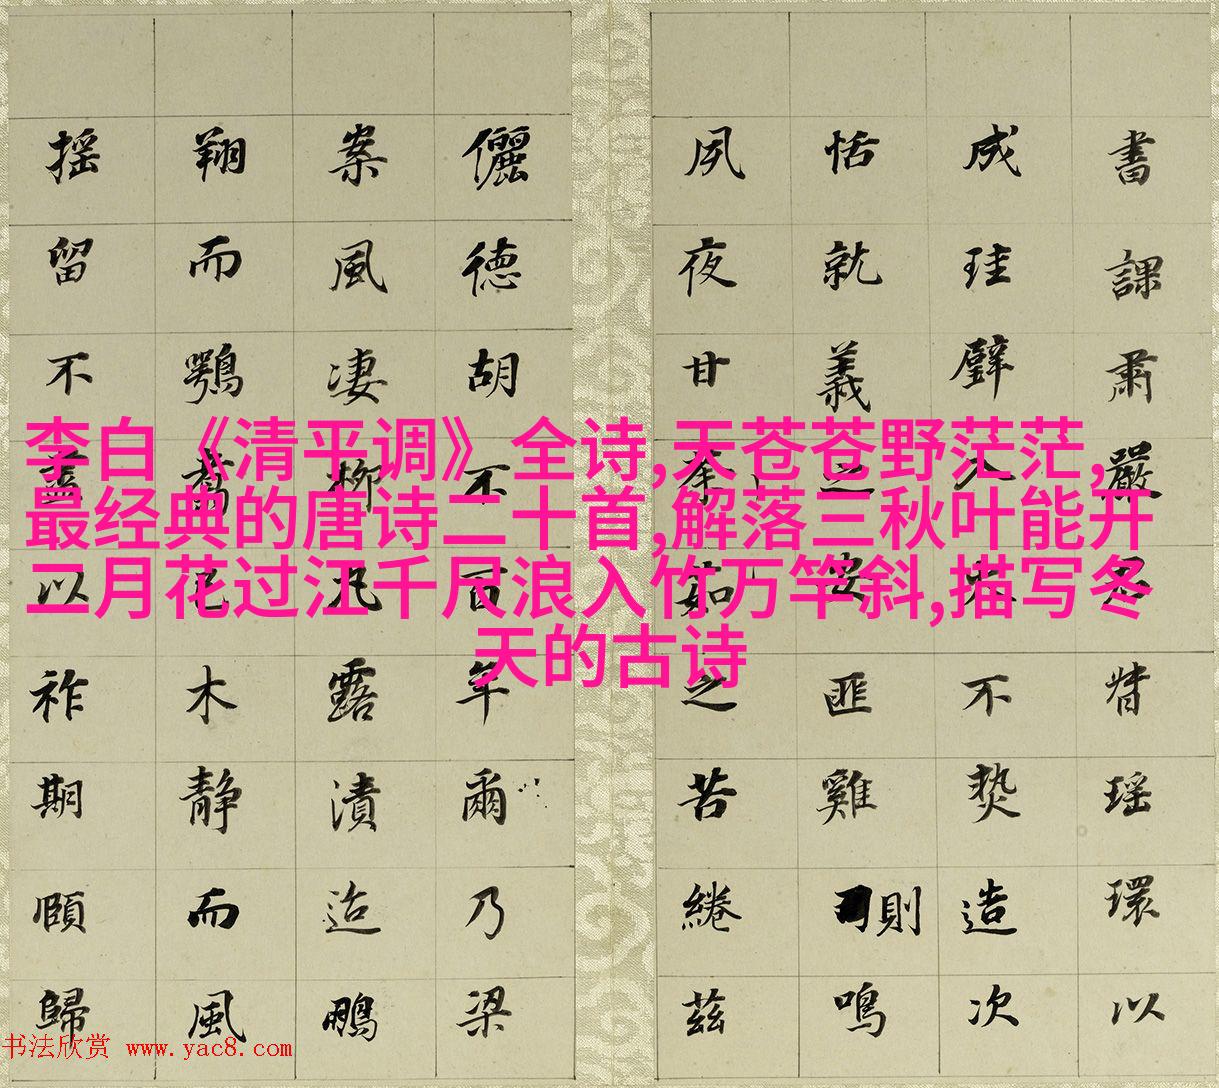 李白《清平调》全诗,天苍苍野茫茫,
最经典的唐诗二十首,解落三秋叶能开
二月花过江千尺浪入竹万竿斜,描写冬
天的古诗
書課肅嚴瑶環以
成珪璧不爇造次
恬就義之安匪雞則鳴
夙夜甘荼如之苦綣茲
儷德胡不百年爾乃梁
案風凄柳露漬迨鵬
翔而鶚木靜而風
摇留不蓋以祚期頤歸
书法欣赏 www.yac8.com